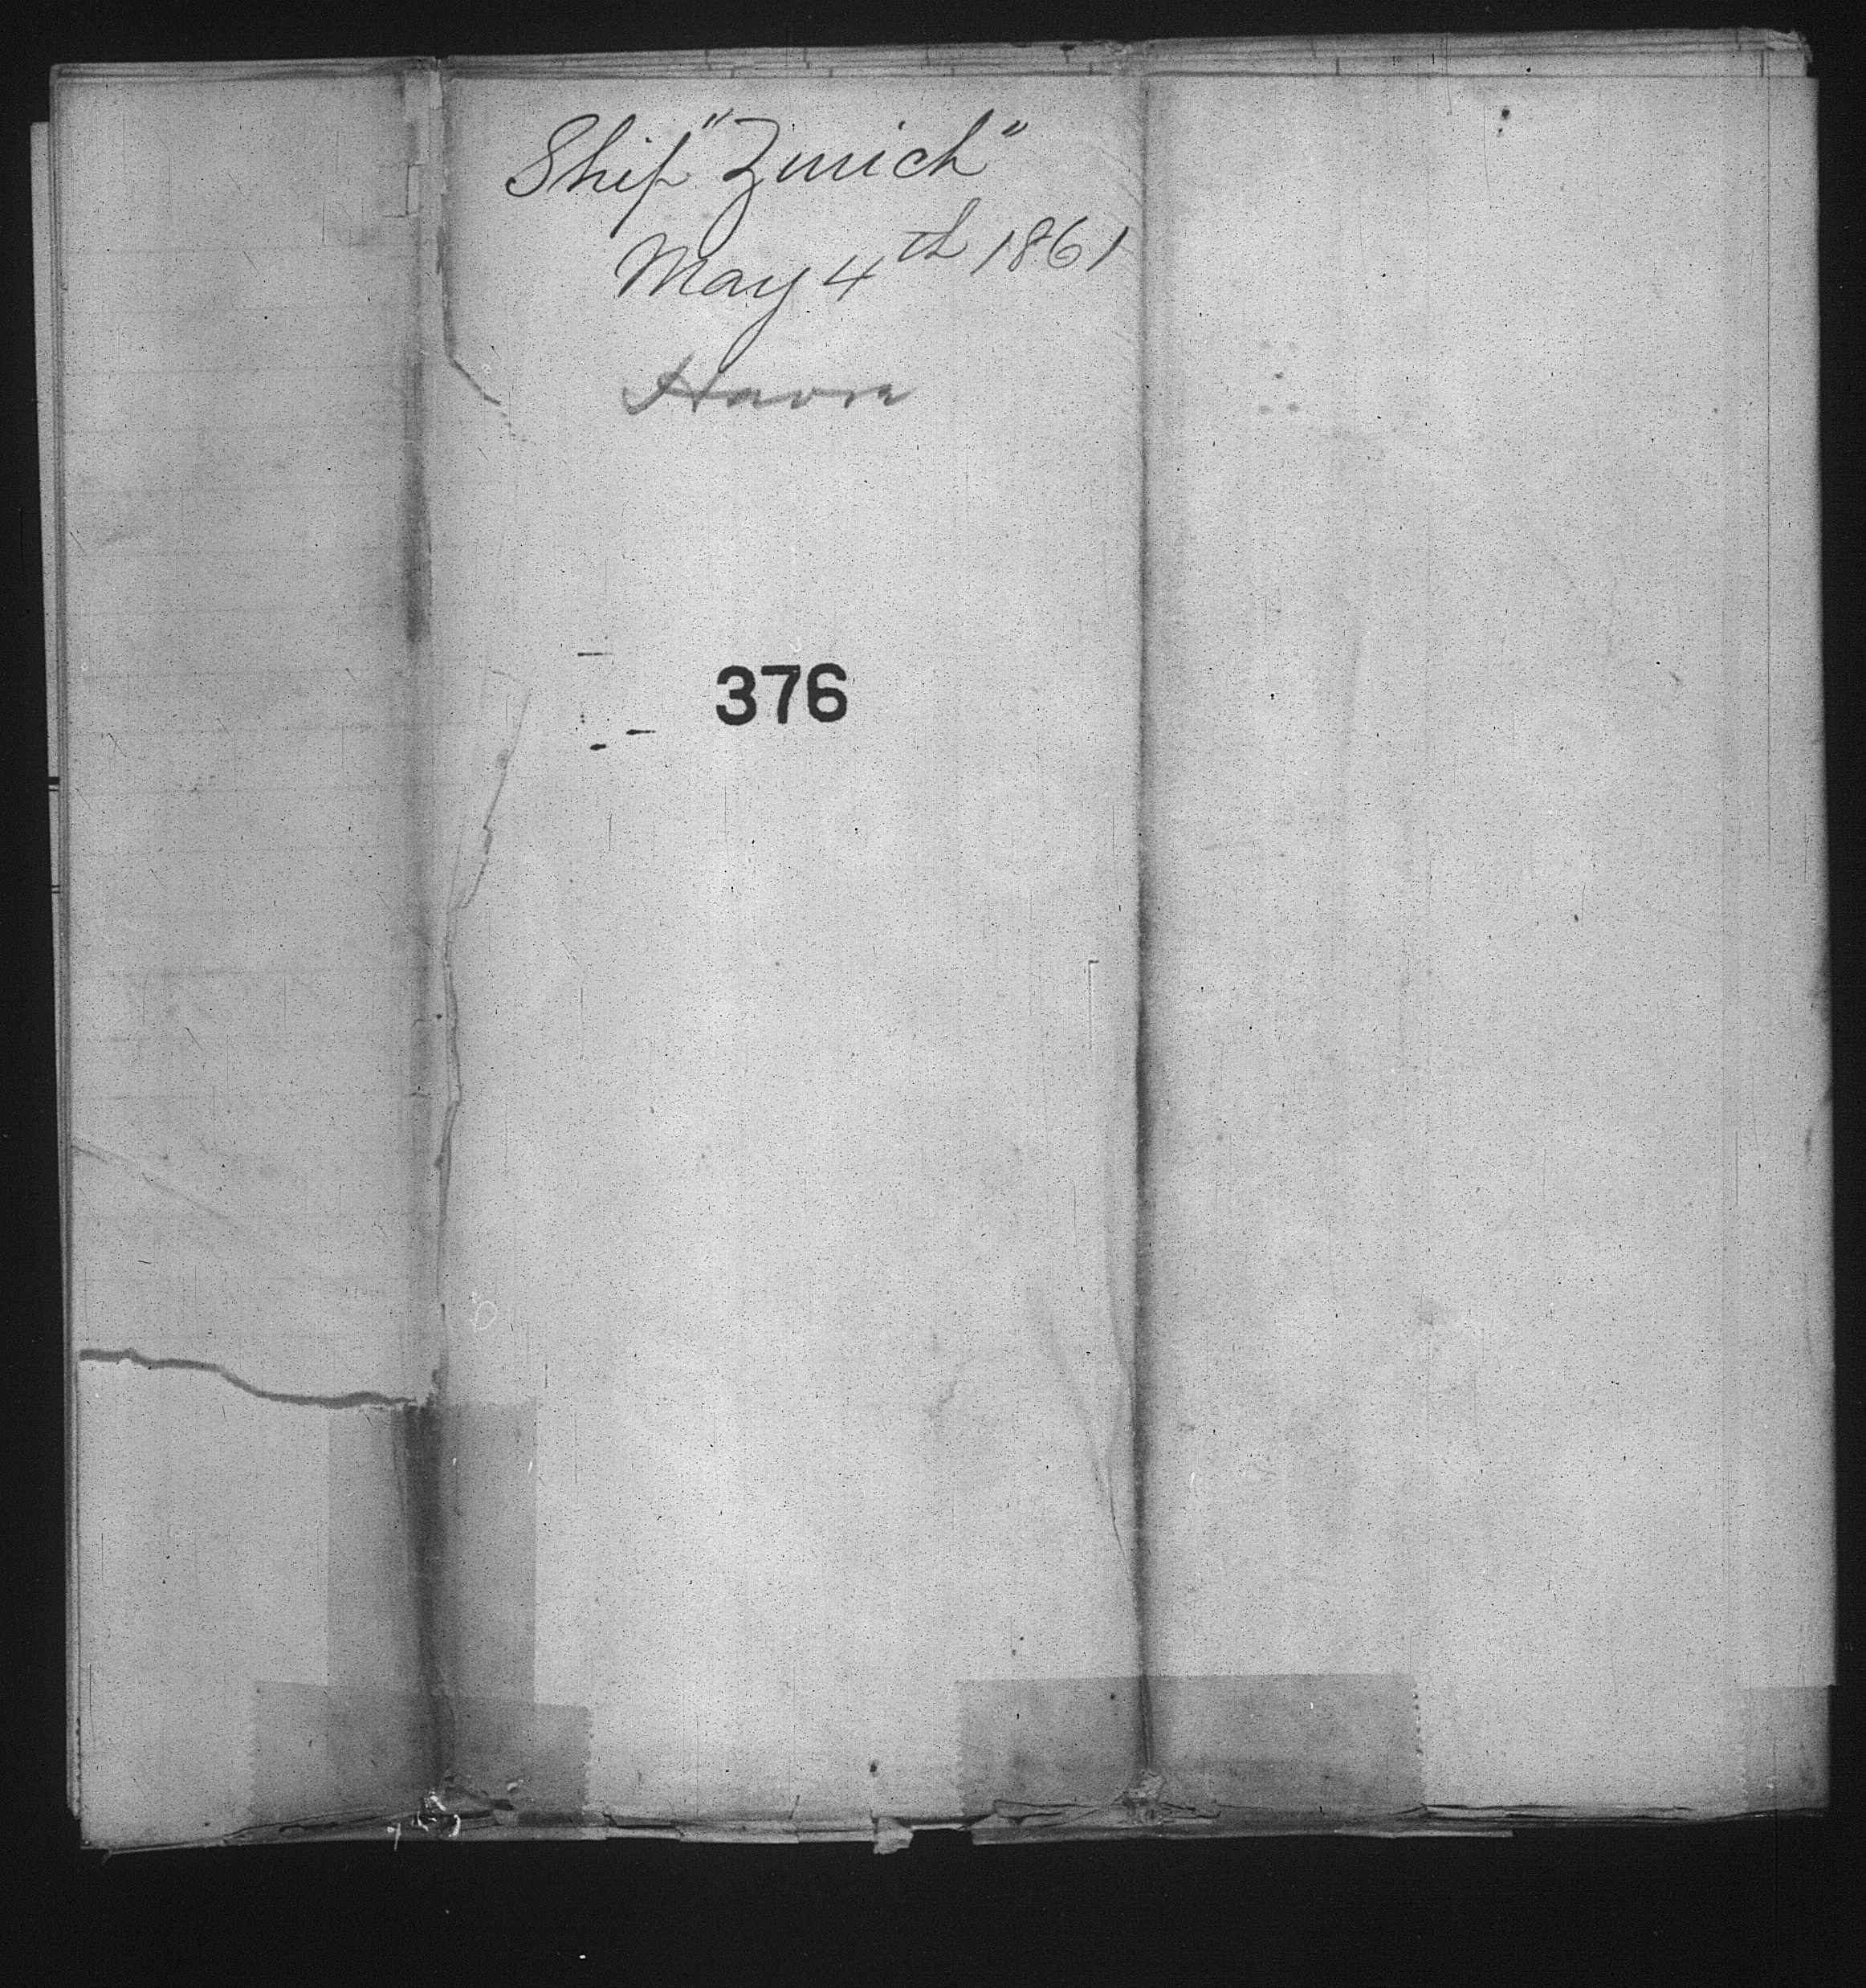 Ship "Zurich"
May 4th 1861
Havre
376